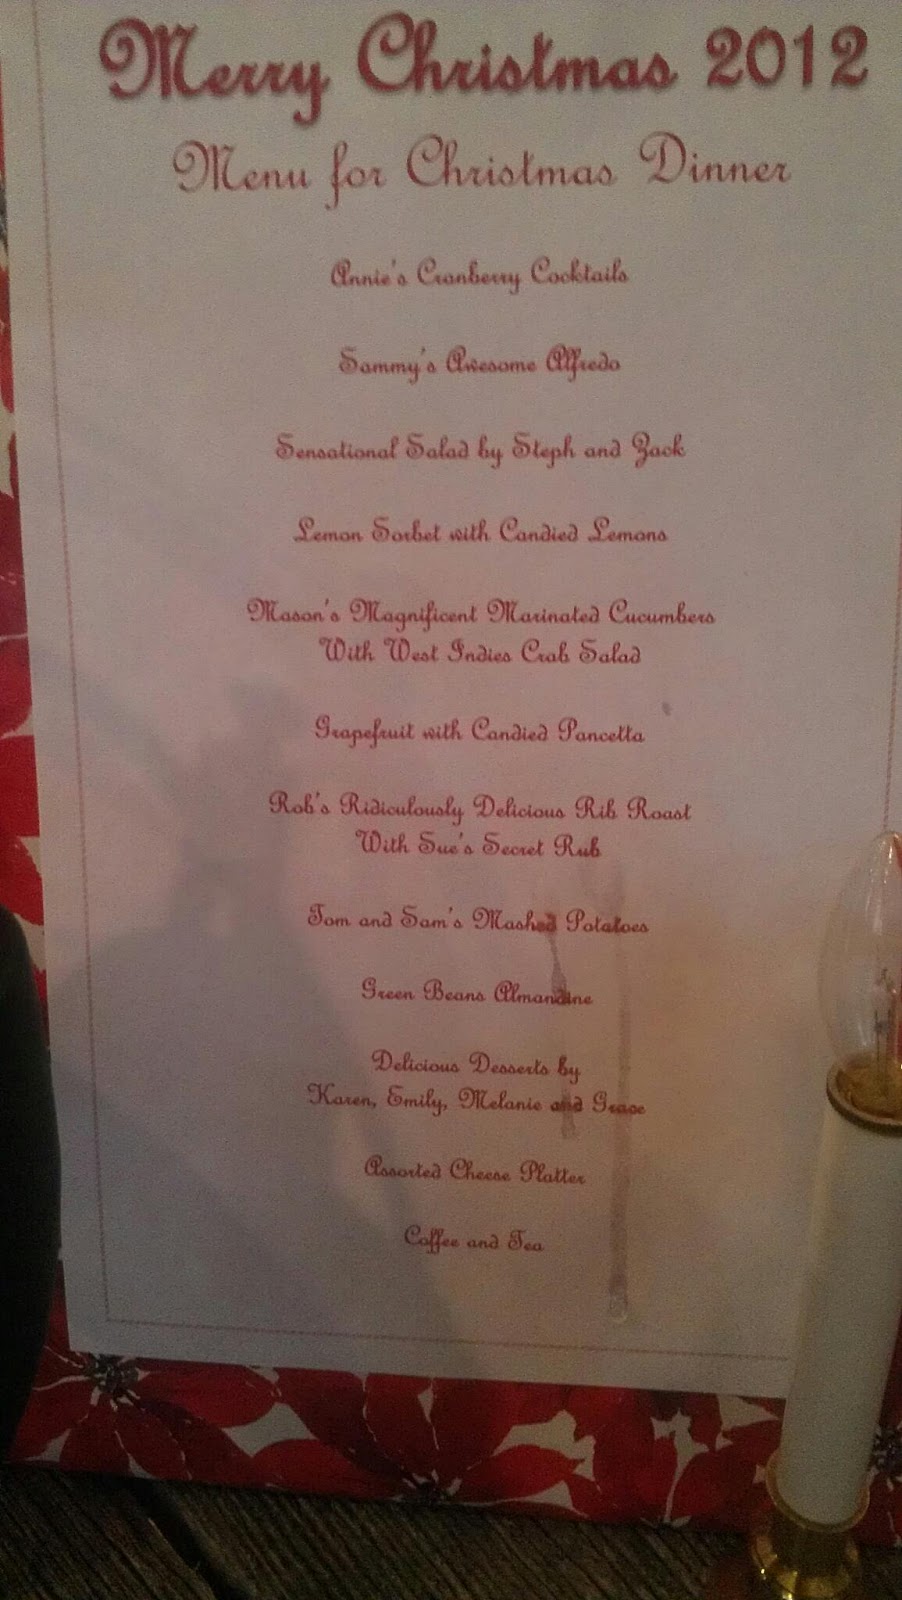 Merry Christmas 2012
Menu for Christmas Dinner
Annie's Cranberry Cocktails
Sammy's Awesome Alfredo
Sensational Salad by Steph and Zack
Lemon Sorbet with Candied Lemons
Mason's Magnificent Marinated Cucumbers
With West Indies Crab Salad
Grapefruit with Candied Pancetta
Rob's Ridiculously Delicious Rib Roast
With Sue's Secret Rub
Tom and Sam's Mashed Potatoes
Green Beans Almandine
Delicious Desserts by
Karen, Emily, Melanie and Grace
Assorted Cheese Platter
Coffee and Tea